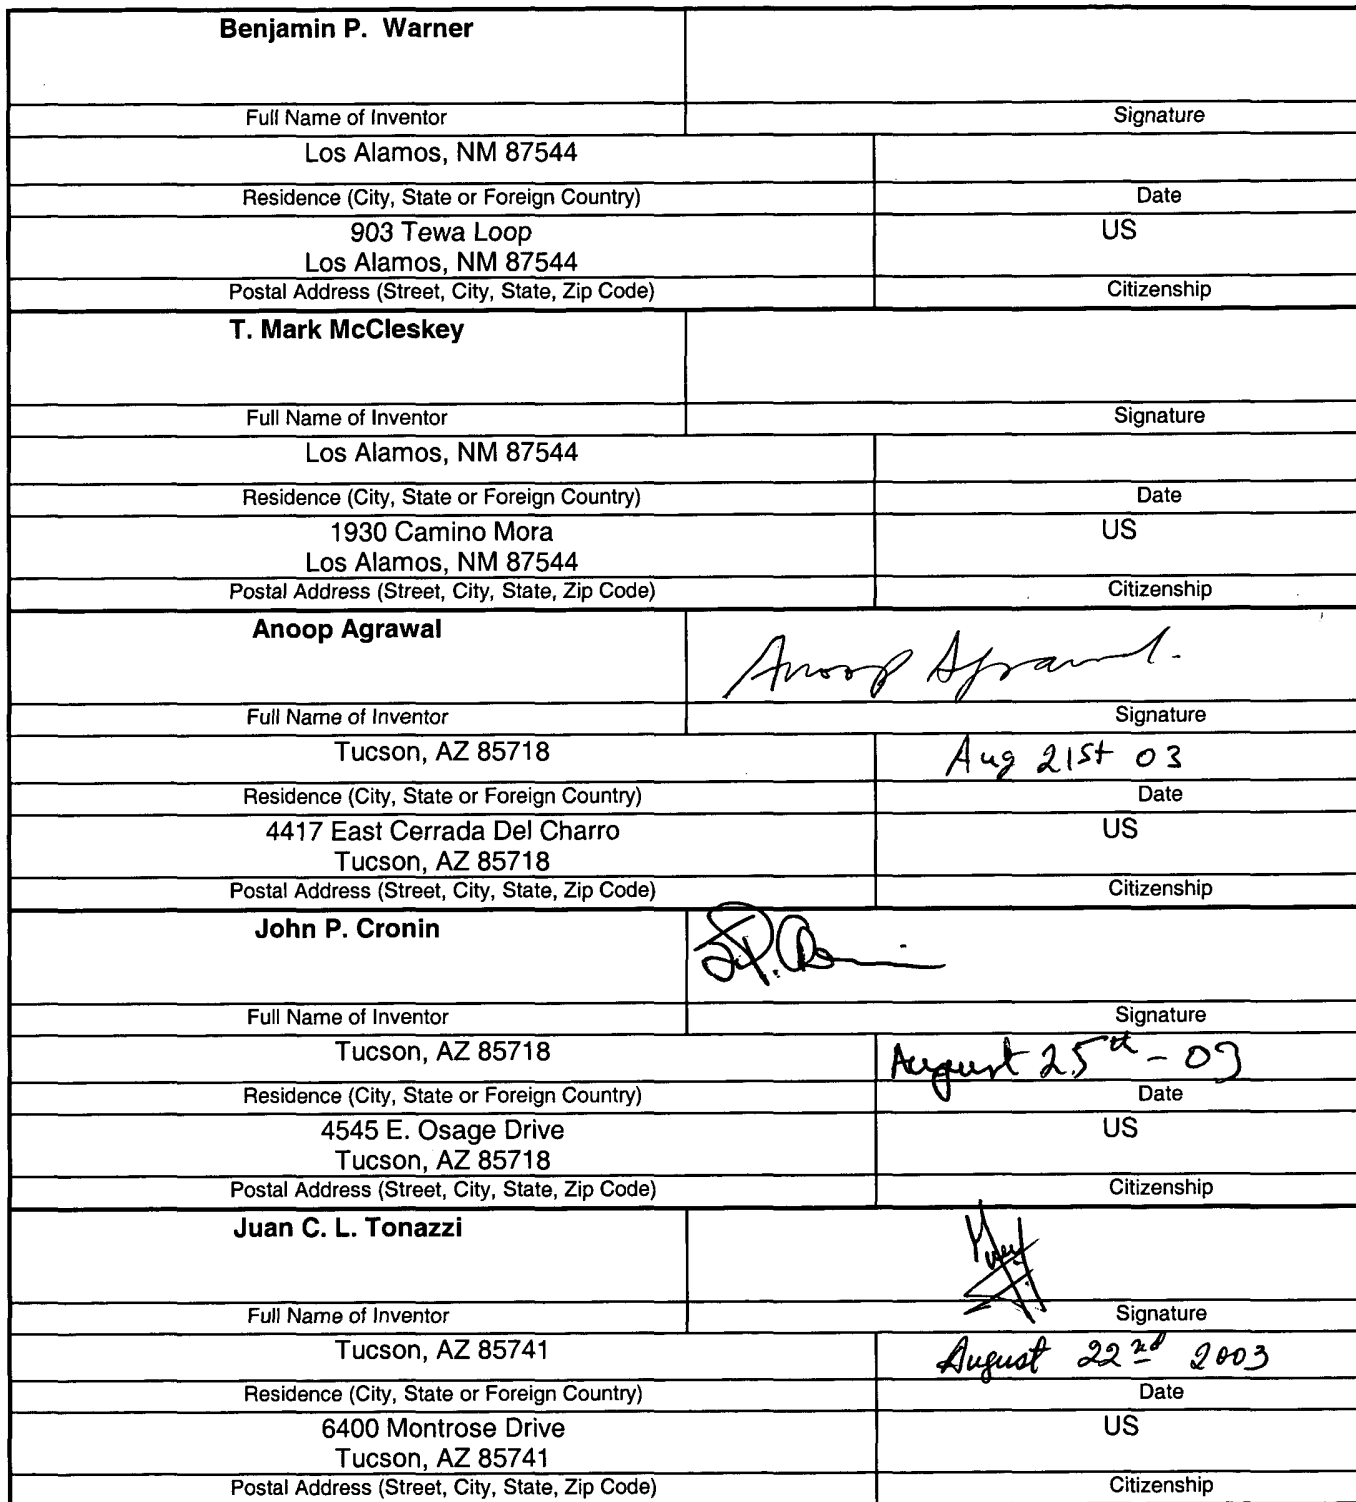 Benjamin P. Warner
Full Name of Inventor Signature
Los Alamos, NM 87544
Residence (City, State or Foreign Country) Date
903 Tewa Loop US
Los Alamos, NM 87544
Postal Address (Street, City, State, Zip Code) Citizenship
T. Mark McCleskey
Full Name of Inventor Signature
Los Alamos, NM 87544
Residence (City, State or Foreign Country) Date
1930 Camino Mora US
Los Alamos, NM 87544
Postal Address (Street, City, State, Zip Code) Citizenship
Anoop Agrawal Anoop Agrawal.
Full Name of Inventor Signature
Tucson, AZ 85718 Aug 21st 03
Residence (City, State or Foreign Country) Date
4417 East Cerrada Del Charro US
Tucson, AZ 85718
Postal Address (Street, City, State, Zip Code) Citizenship
John P. Cronin J.P. Cronin
Full Name of Inventor Signature
Tucson, AZ 85718 August 25th - 03
Residence (City, State or Foreign Country) Date
4545 E. Osage Drive US
Tucson, AZ 85718
Postal Address (Street, City, State, Zip Code) Citizenship
Juan C. L. Tonazzi
Full Name of Inventor Signature
Tucson, AZ 85741 August 22nd 2003
Residence (City, State or Foreign Country) Date
6400 Montrose Drive US
Tucson, AZ 85741
Postal Address (Street, City, State, Zip Code) Citizenship